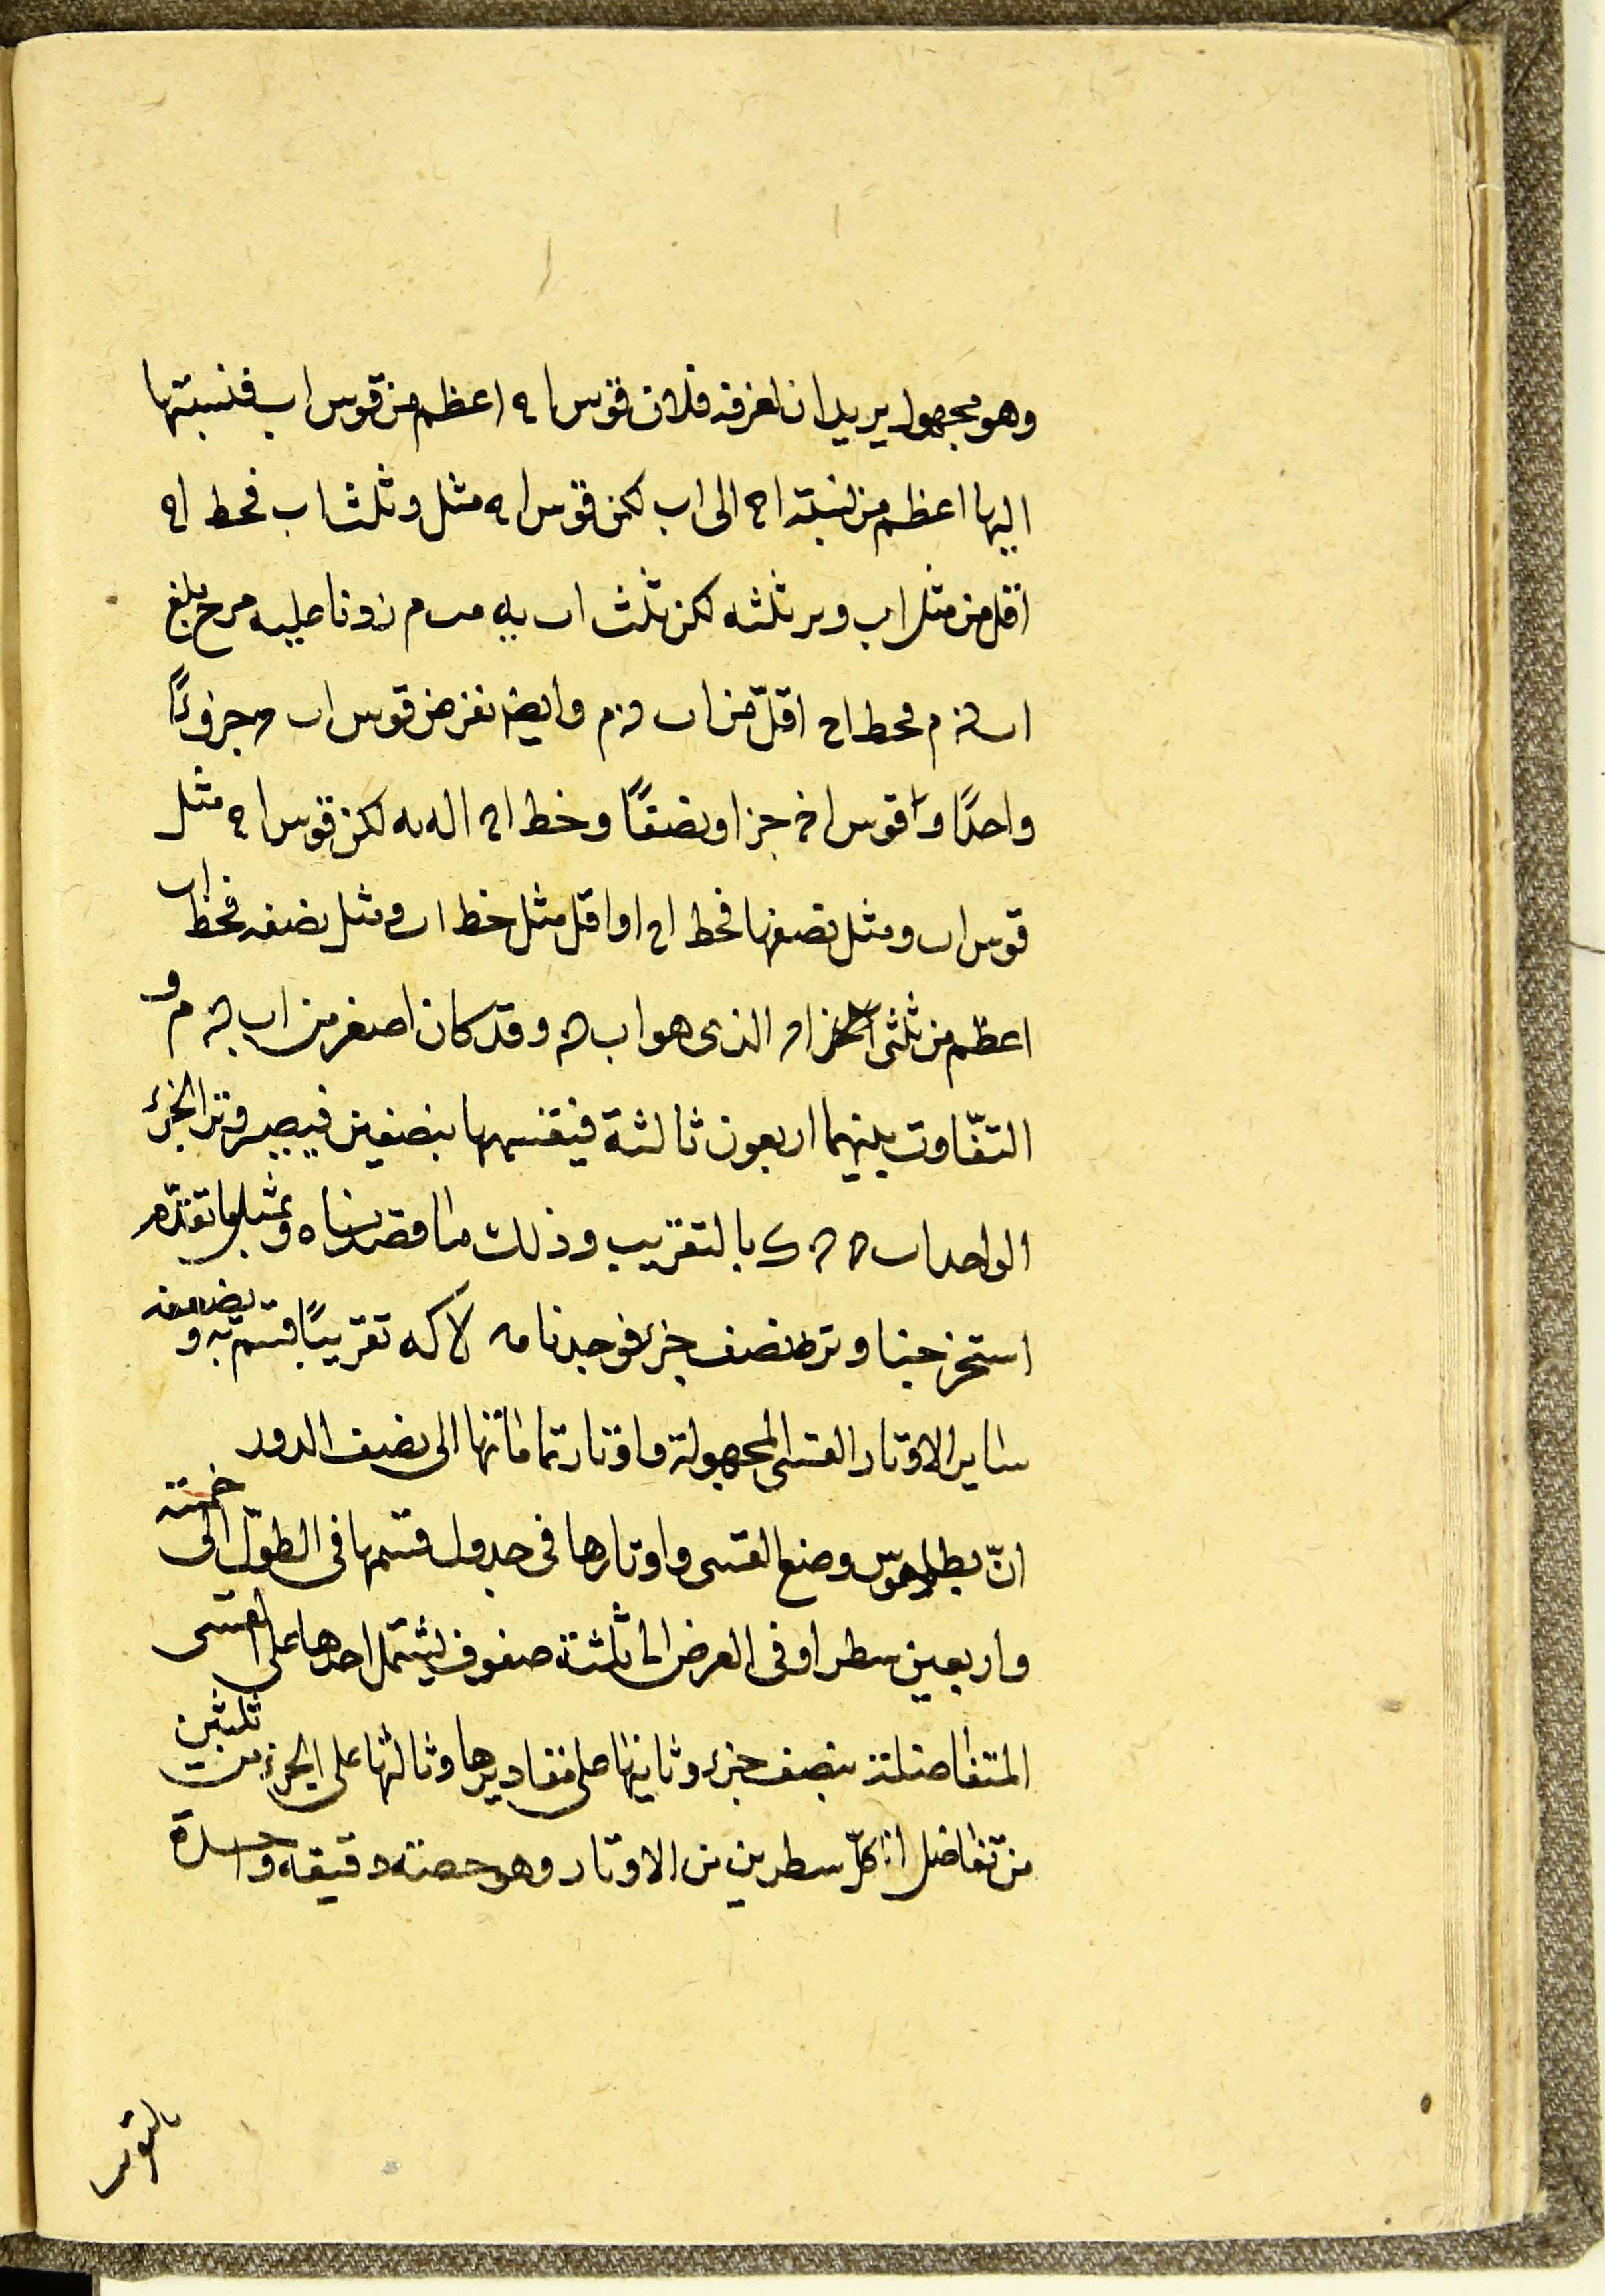 وهو مجهول يريد ان نعرفه فلان قوس اج اعظم من قوس اب فنسبتها
اليها اعظم من نسبة اج الى اب لكن قوس اج مثل وثلث اب فخط اج
اقل من مثل اب وبر ثلثه لكن ثلث اب يه زدنا عليه مرح بلغ
فخط اج اقلّ من اب وايضا نفرض قوس اب جزوءًا
واحدًا وٓ قوس اج جزا ونصفًا وخط اج اله يه لكن قوس اج مثل
قوس اب ومثل نصفها فخط اج اواقل مثل خط اب ومثل نصفه فخط اب
اعظم من ثلثى الذى هو اب وقد كان اصغر من اب م و
التفّاوت بينهما اربعون ثالثة فيقسمها بنصفين فيصير وتر الجزء
الواحد اب بالتقريب وذلك ما قصدناه وبمثل ما تقدّم
استخرجنا وتر نصف جزء فوجدنا لا كه تقريبًا قسم به و
ساير الاوتار القسى المجهولة واوتار تماماتها الى نصف الدور
انّ بطلميوس وضع القسى واوتارها فى جدول قسمها فى الطول الى خمسة
واربعين سطرا وفى العرض الى ثلثة صفوف ليشتمل احدها على القسى
المتفاضلة بنصف جزء وثانيها على مقاديرها وثالثها على الجزء من ثلثين
من تفاضل كلّ سطرين من الاوتار وهو حصته دقيقه واحدة
بالقوس